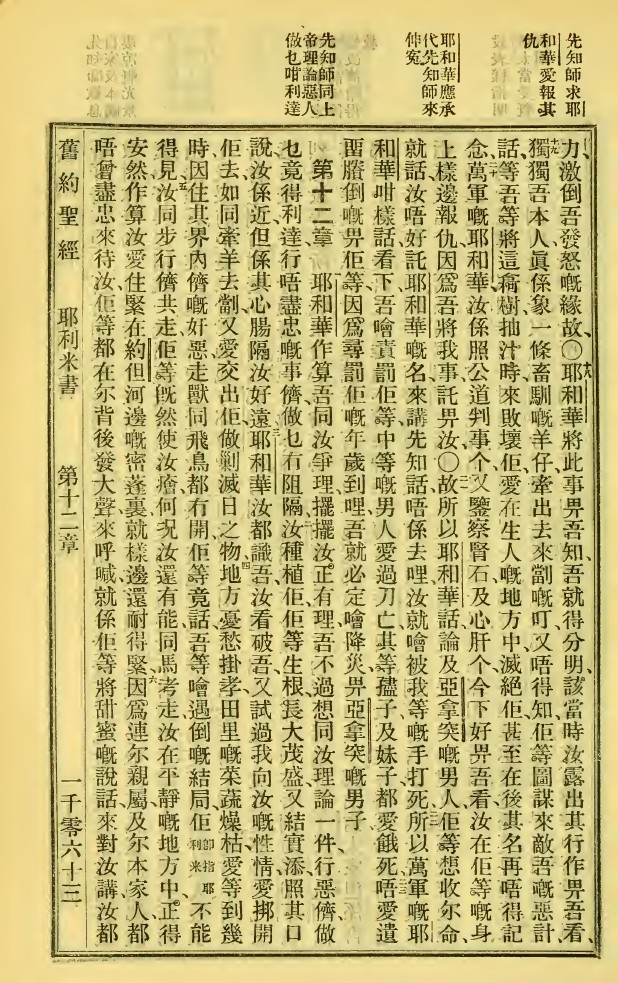 先知師求耶
和華愛報其
仇
耶和華應承
代先知師來
伸寃
先知師同上
帝理論惡人
做乜咁利達
力、激倒吾發怒嘅緣故、〇耶和華將此事畀吾知、吾就得分明、該當時汝露出其行作畀吾看、
獨獨吾本人眞係象一條畜馴嘅羊仔、牽出去來劏嘅叮、又唔得知佢等圖謀來敵吾嘅惡計、
話、等吾等將這裔樹抽汁時來敗壞佢、愛在生人嘅地方中滅絕佢、甚至在後其名再唔得記
念、萬軍嘅耶和華、汝係照公道判事个、又鑒察腎石及心肝个、今下好畀吾看汝在佢等嘅身
上樣邊報仇、因爲吾將我事託畀汝、〇故所以耶和華話論及亞拿突嘅男人、佢等想收尔命、
就話、汝唔好託耶和華嘅名來講先知話、唔係去哩、汝就噲被我等嘅手打死、所以萬軍嘅耶
和華咁樣話、看下、吾噲責罰佢等、中等嘅男人愛過刀亡、其等孻子及妹子都愛餓死、唔愛遺
畱賸倒嘅畀佢等、因爲尋罰佢嘅年歲到哩、吾就必定噲降災畀亞拿突嘅男子、
第十二章 耶和華作算吾同汝爭理擺擺汝正有理、吾不過想同汝理論一件、行惡儕做
乜竟得利達、行唔盡忠嘅事儕、做乜冇阻隔、汝種植佢、佢等生根、長大茂盛、又結實添、照其口
說、汝係近、但係其心腸隔汝好遠、耶和華、汝都識吾、汝看破吾、又試過我向汝嘅性情、愛挷開
佢去、如同牽羊去劏、又愛交出佢做剿滅日之物、地方憂愁掛孝、田里嘅菜蔬燥枯、愛等到幾
時、因住其界內儕嘅奸惡、走獸同飛鳥都冇開、佢等竟話、吾等噲遇倒嘅結局、佢即指耶利米不能
得見、汝同步行儕共走、佢等旣然使汝瘡、何况汝還有能同馬考走、汝在平靜嘅地方中、正得
安然、作算汝愛住緊在約但河邊嘅密蓬裏、就樣邊還耐得緊、因爲連尔親屬、及尔本家人、都
唔曾盡忠來待汝、佢等都在尔背後發大聲來呼喊、就係佢等將甜蜜嘅說話來對汝講、汝都
舊約聖經 耶利米書 第十二章 一千零六十三